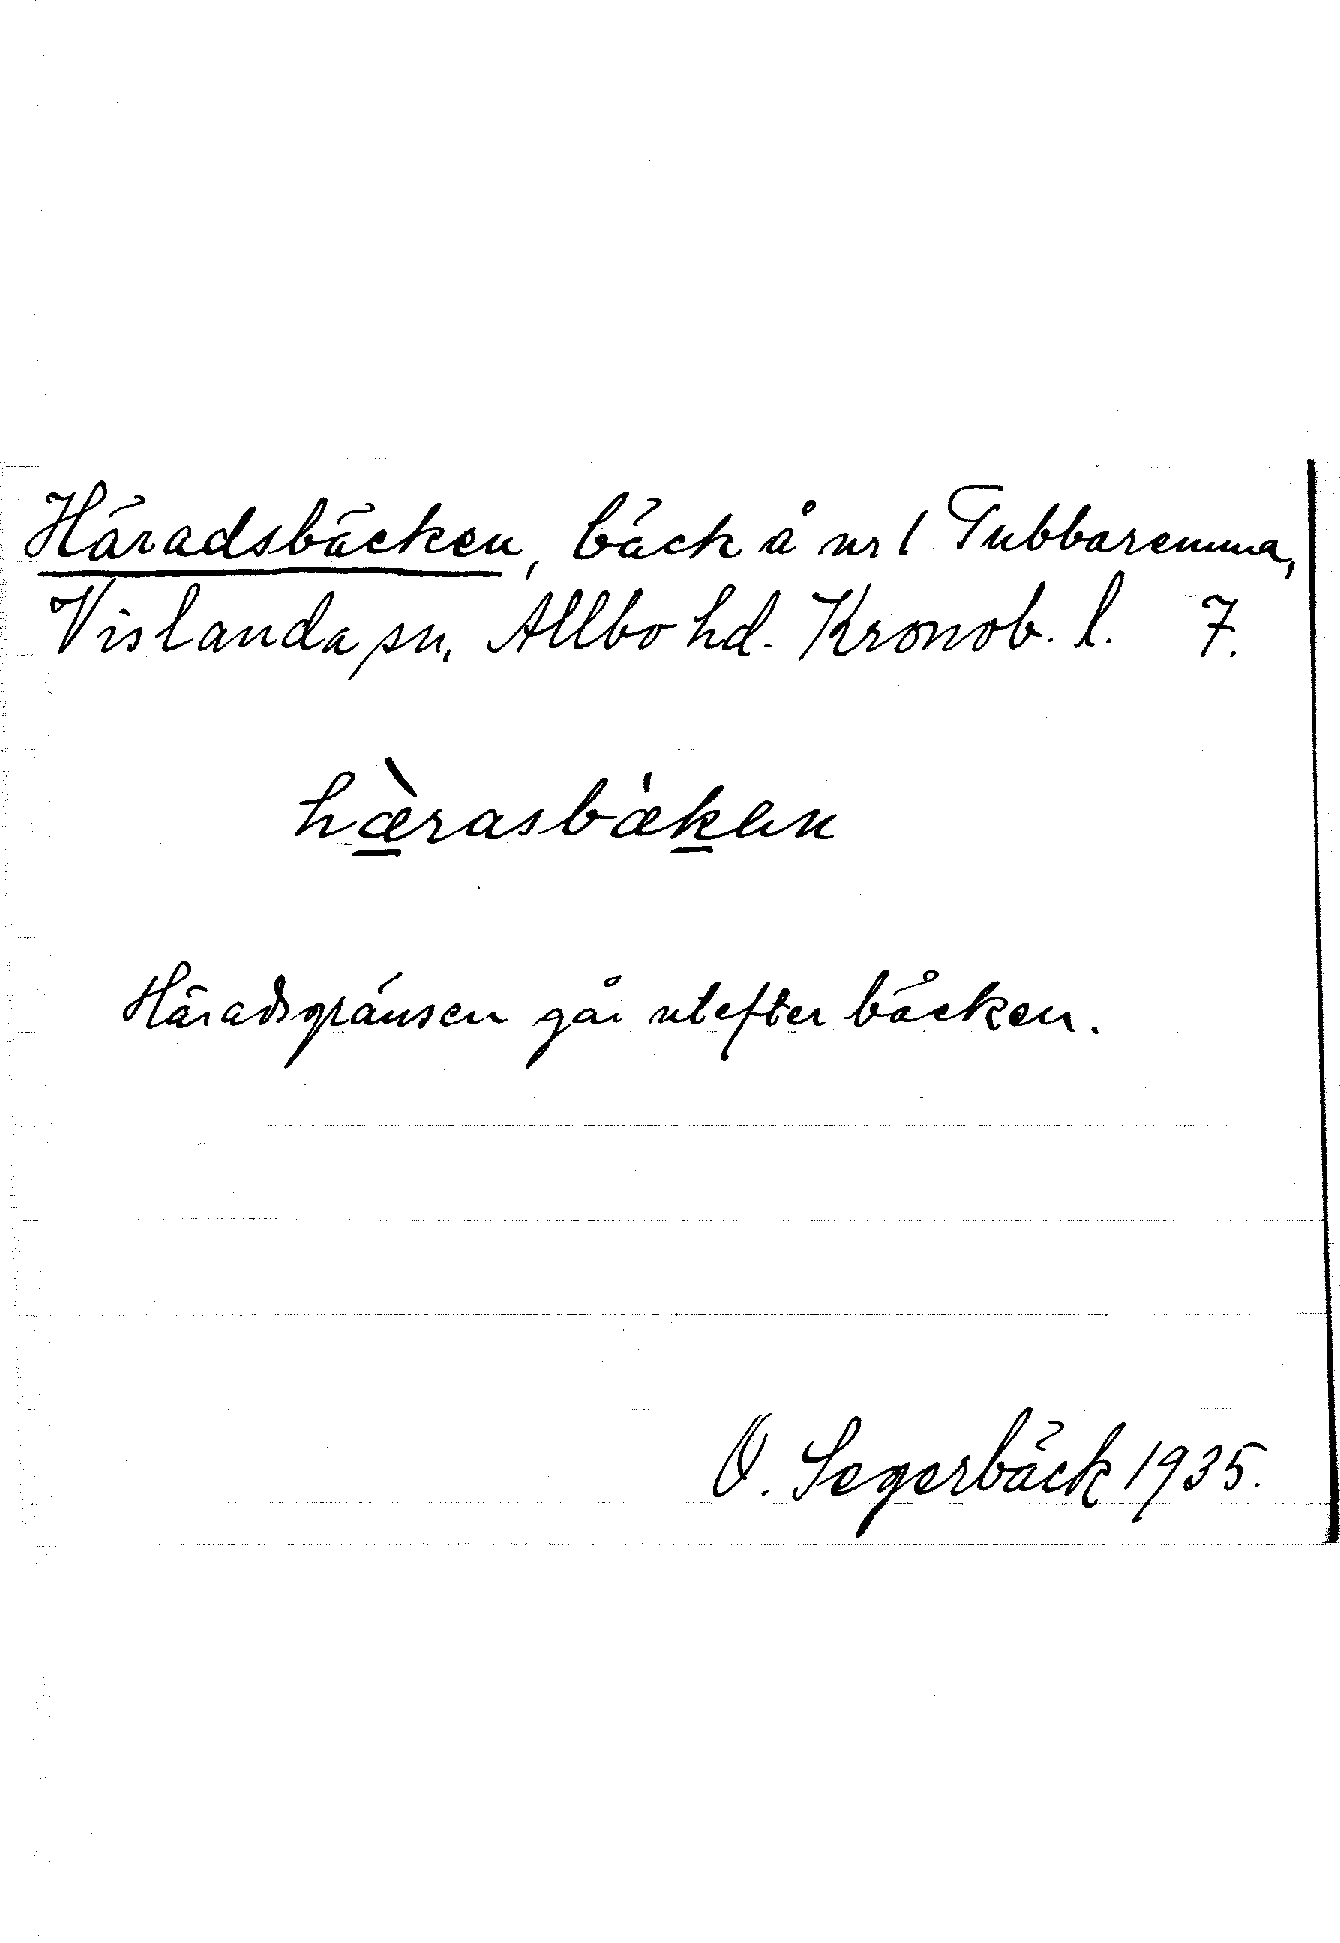 Häradsbäcken, bäck å nr 1 Tubbaremma,
Vislanda sn, Allbo hd. Kronob. l. 7.
hæ̀rasbækən
Häradsgränsen går utefter bäcken.
O. Segerbäck 1935.